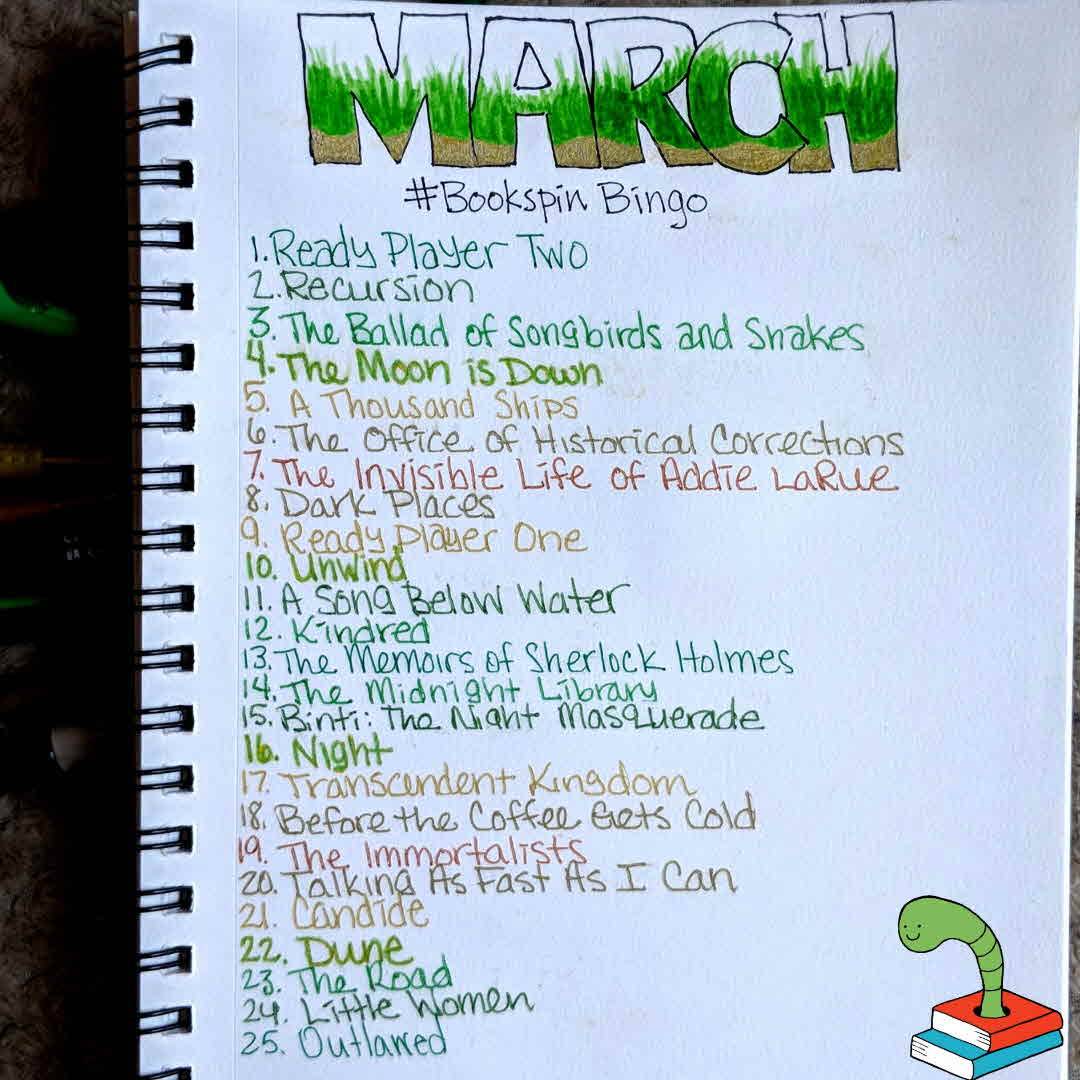 MARCH
#Bookspin Bingo
1. Ready Player Two
2. Recursion
3. The Ballad of Songbirds and Snakes
4. The Moon is Down
5. A Thousand Ships
6. The Office of Historical Corrections
7. The Invisible Life of Addie LaRue
8. Dark Places
9. Ready Player One
10. Unwind
11. A Song Below Water
12. Kindred
13. The Memoirs of Sherlock Holmes
14. The Midnight Library
15. Binti: The Night Masquerade
16. Night
17. Transcendent Kingdom
18. Before the Coffee Gets Cold
19. The Immortalists
20. Talking As Fast As I Can
21. Candide
22. Dune
23. The Road
24. Little Women
25. Outlawed